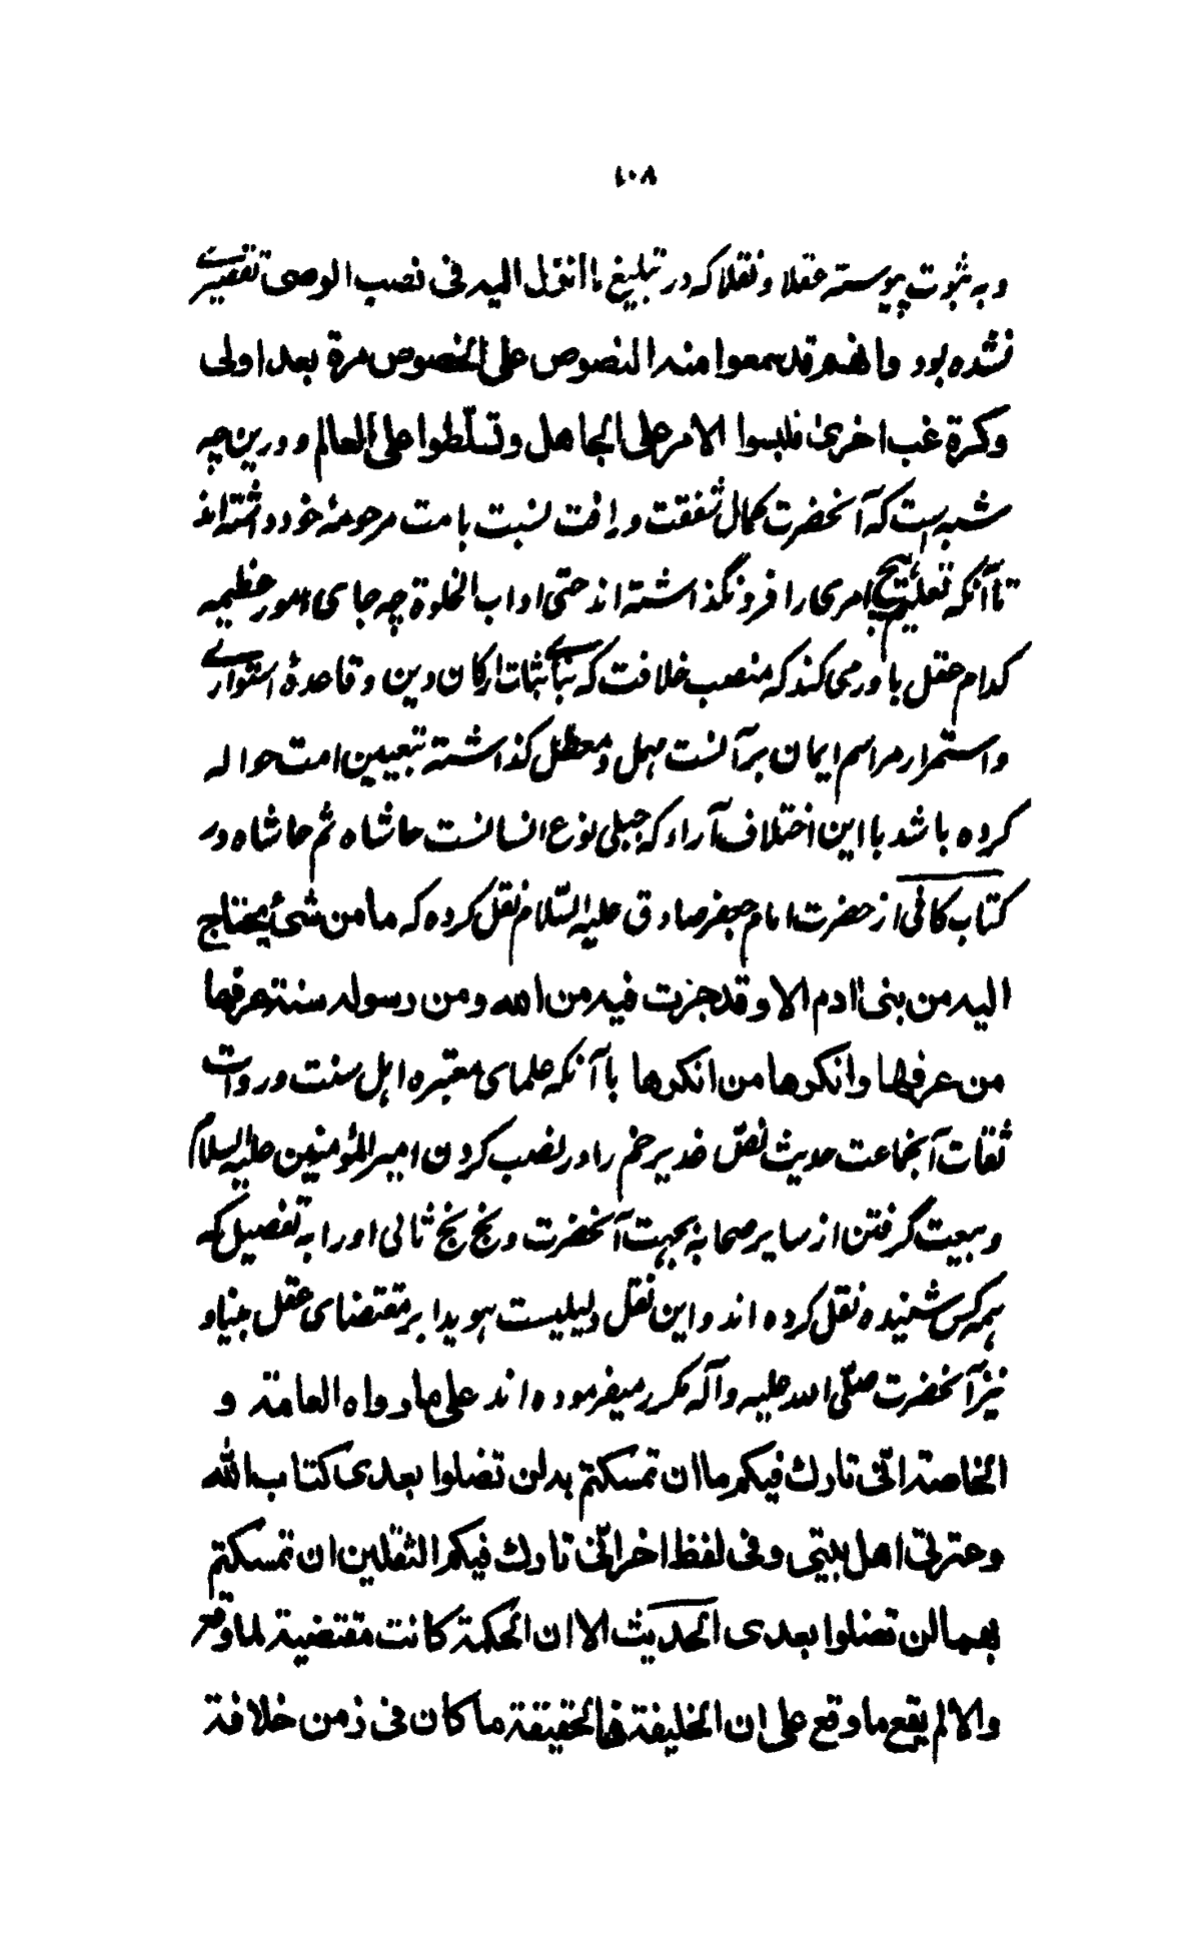 ۱۰۸
و به ثبوت پیوسته عقلا و نقلا که در تبلیغ ما انزل الیه فی نصب الوصی تقصیری
نشده بود وانهم قد سمعوا منه النصوص علی الخصوص مرة بعد اولی
وکرة غب اخری فلبسوا الامر علی الجاهل وتسلّطوا علی العالم و درین چه
شبه است که آنحضرت کمال شفقت و رافت نسبت بامت مرحومهٔ خود داشته اند
تا آنکه تعلیم هیچ امری را فرو نگذاشته اند حتی اداب الخلوة چه جای امور عظیمه
کدام عقل باور می کند که منصب خلافت که بنای ثبات ارکان دین و قاعدهٔ استواری
و استمرار مراسم ایمان برآنست مهمل و معطل گذاشته بتعیین امت حواله
کرده باشد با این اختلاف آراء که جبلی نوع انسانست حاشاه ثم حاشاه در
کتاب کافی از حضرت امام جعفر صادق علیه السّلام نقل کرده که ما من شئ یحتاج
الیه من بنی ادم الا وقد جرت فیه من الله ومن رسوله سنة عرفها
من عرفها وانکرها من انکرها با آنکه علمای معتبره اهل سنت و روات
ثقات آنجماعت حدیث نصّ غدیر خم را در نصب کردن امیرالمؤمنین علیه السلام
و بیعت گرفتن از سایر صحابه بجهت آنحضرت و بخ بخ ثانی او را به تفصیل که
همه کس شنیده نقل کرده اند و این نقل دلیلیست هویدا بر مقتضای عقل بینا و
نیز آنحضرت صلّی الله علیه و آله مکرر میفرموده اند علی ما رواه العامة و
الخاصة انّی تارك فیکم ما ان تمسکتم به لن تضلوا بعدی کتاب الله
وعترتی اهل بیتی وفی لفظ اخر انّی تارك فیکم الثقلین ان تمسکتم
بهما لن تضلوا بعدی الحدیث الا ان الحکمة کانت مقتضیة لما وقع
والا لم یقع ما وقع علی ان الخلیفة فی الحقیقة ما کان فی زمن خلافة